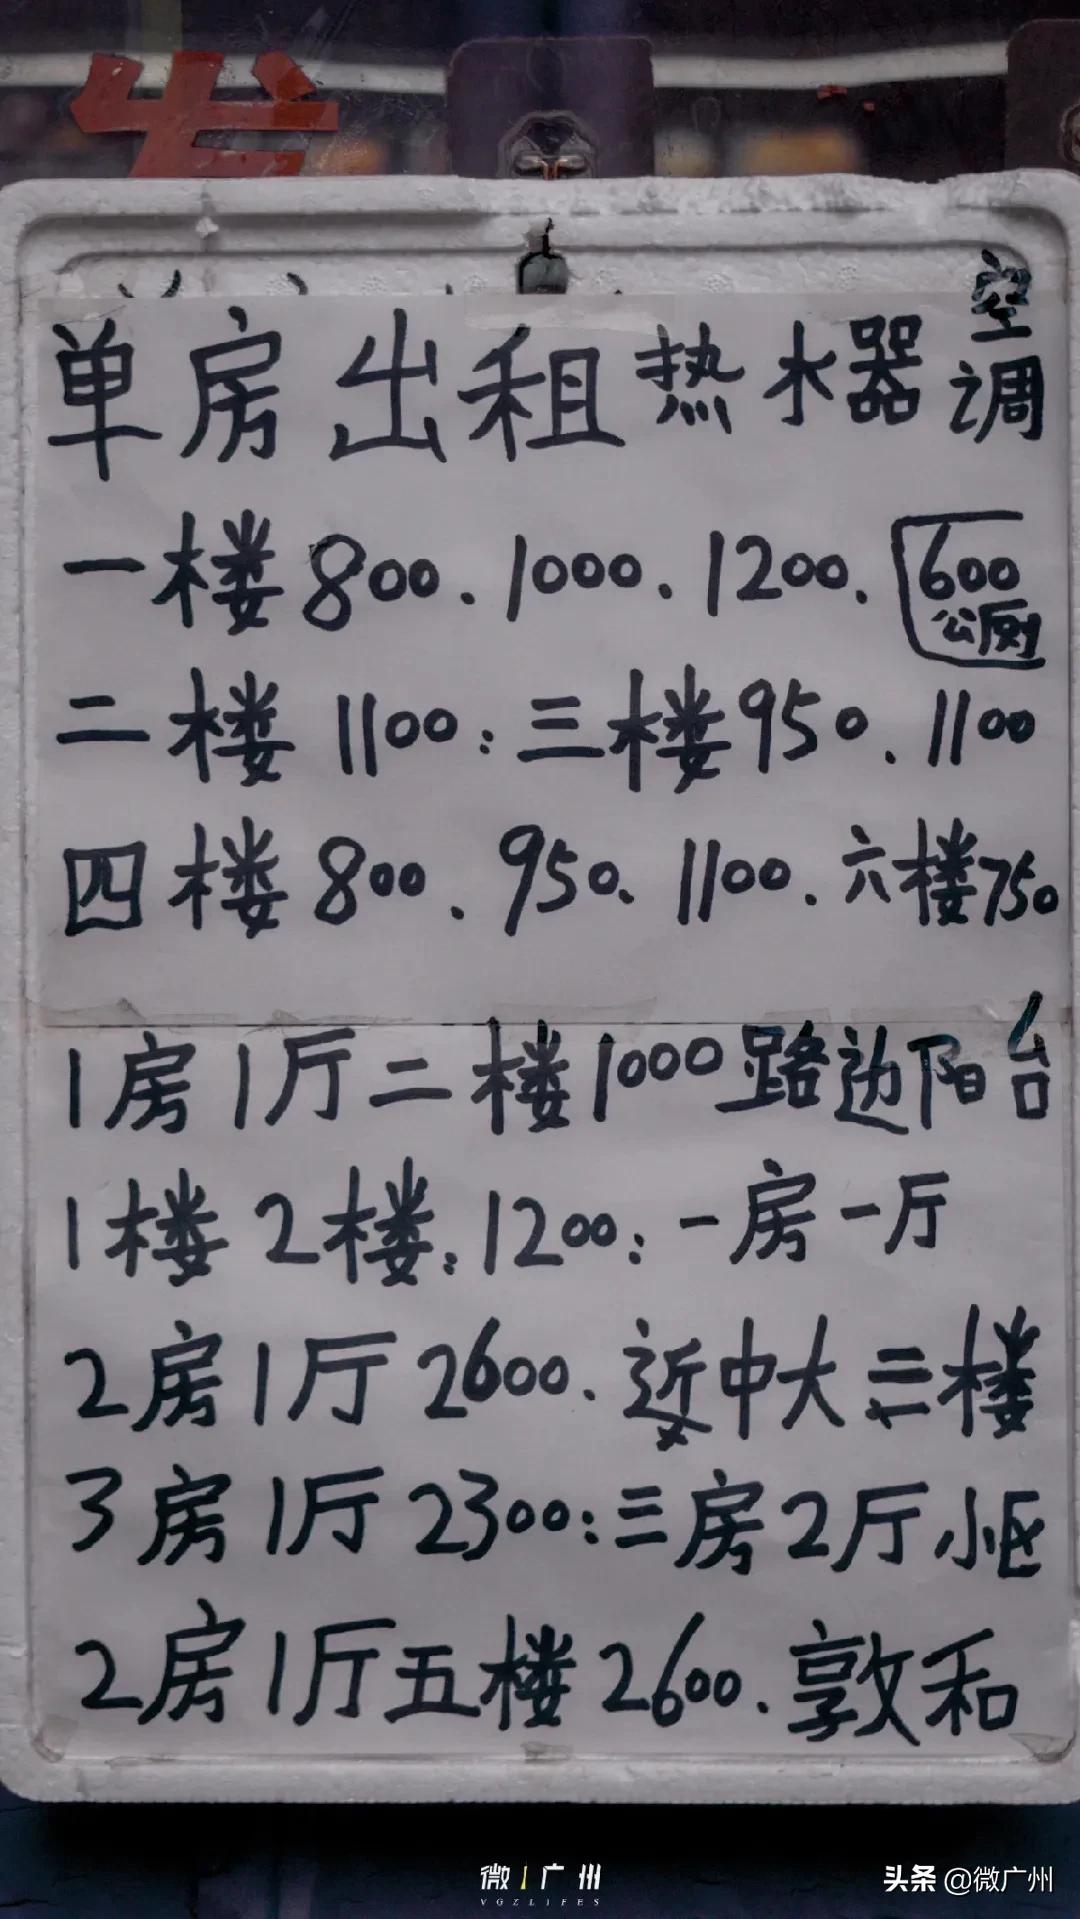 发
单房出租热水器空调
一楼800.1000.1200.600公厕
二楼1100:三楼950.1100
四楼800.950.1100.六楼750
1房1厅二楼1000路边阳台
1楼2楼:1200:一房一厅
2房1厅2600.近中大三楼
3房1厅2300:三房2厅小区
2房1厅五楼2600.敦和
微广州
VGZLIFES
头条@微广州